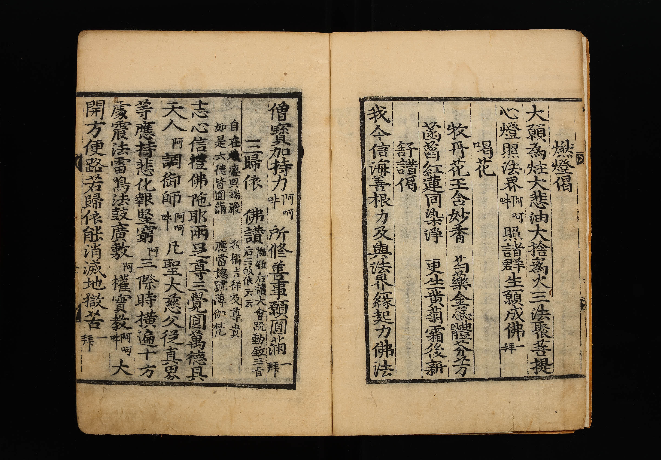 燃燈偈
大願爲炷大悲油大捨爲火三法聚菩提
心燈照法界 阿阿吽 照諸群生願成佛 一拜
唱花
牧丹花王含妙香 芍藥金蘂體芬芳
菡萏紅蓮同染淨 更生黃菊霜後新
舒讃偈
我今信海善根力及與法界緣起力佛法
僧寶加持力 阿阿吽 所修善事願圓滿 一拜
三歸依 佛讃
自在
志心信禮佛陁耶兩足尊三覺圓萬德具
天人 阿 調御師 阿阿吽 凡聖大慈父從眞界
等應持悲化報竪窮 阿 三際時橫遍十方
處震法雷鳴法鼓廣敷 阿 權實敎 阿阿吽 大
開方便路若歸依能消滅地獄苦 一拜